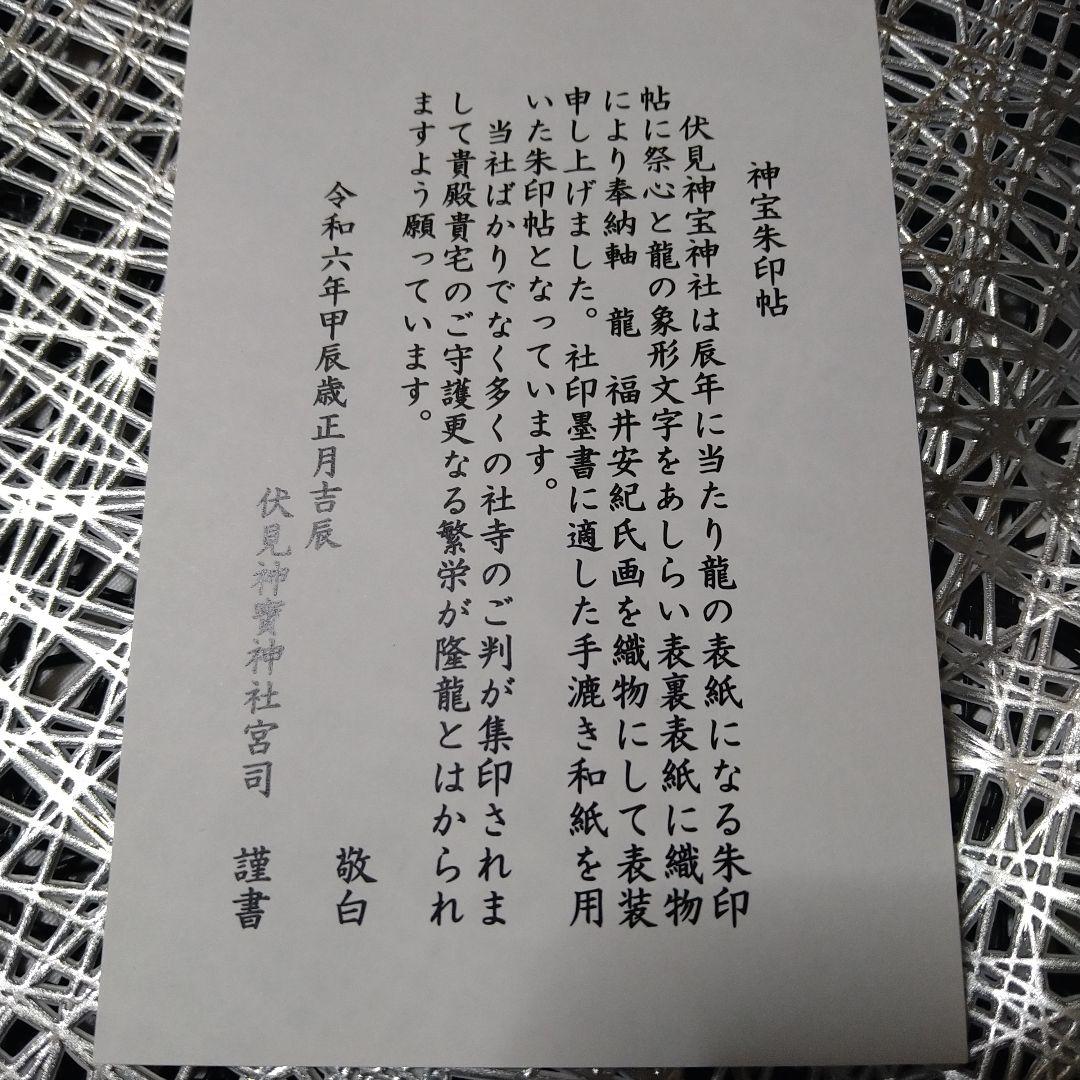 神宝朱印帖
伏見神宝神社は辰年に当たり龍の表紙になる朱印
帖に祭心と龍の象形文字をあしらい表裏表紙に織物
により奉納軸　龍　福井安紀氏画を織物にして表装
申し上げました。社印墨書に適した手漉き和紙を用
いた朱印帖となっています。
当社ばかりでなく多くの社寺のご判が集印されま
して貴殿貴宅のご守護更なる繁栄が隆龍とはかられ
ますよう願っています。
敬白
令和六年甲辰歳正月吉辰
伏見神寳神社宮司
謹書